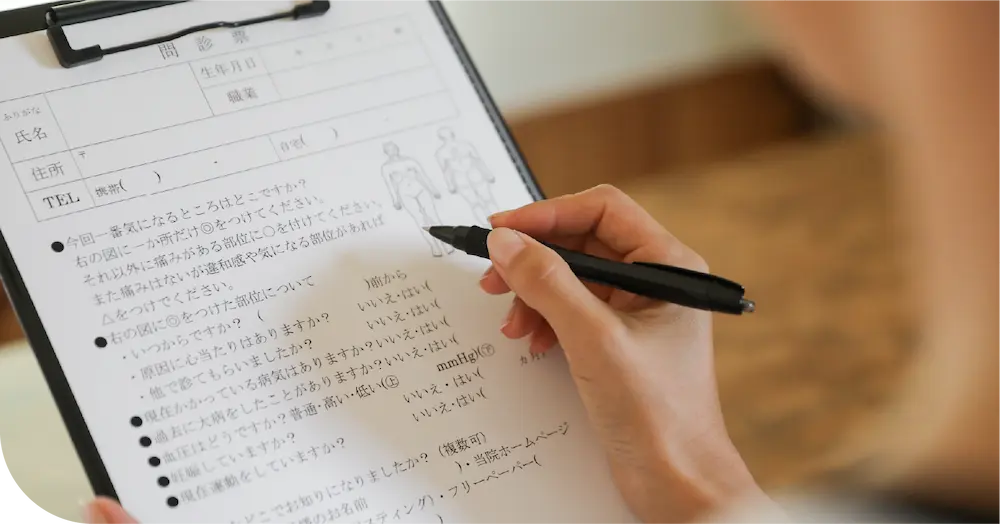 問診票
ふりがな
氏名
生年月日
職業
住所 〒
TEL 携帯( ) 自宅( )
●今回一番気になるところはどこですか？
右の図に一か所だけ◎をつけてください。
それ以外に痛みがある部位に○を付けてください。
また痛みはないが違和感や気になる部位があれば
△をつけてください。
●右の図に◎をつけた部位について
・いつからですか？ ( )前から
・原因に心当たりはありますか？ いいえ・はい(
・他で診てもらいましたか？ いいえ・はい(
●現在かかっている病気はありますか？いいえ・はい(
●過去に大病をしたことがありますか？いいえ・はい(
●血圧はどうですか？普通・高い・低い(㊤ mmHg)(㊦
●妊娠していますか？ いいえ・はい( カ月
●現在運動をしていますか？ いいえ・はい(
どこでお知りになりましたか？（複数可）
様のお名前 )・当院ホームページ
スティング)・フリーペーパー(
)